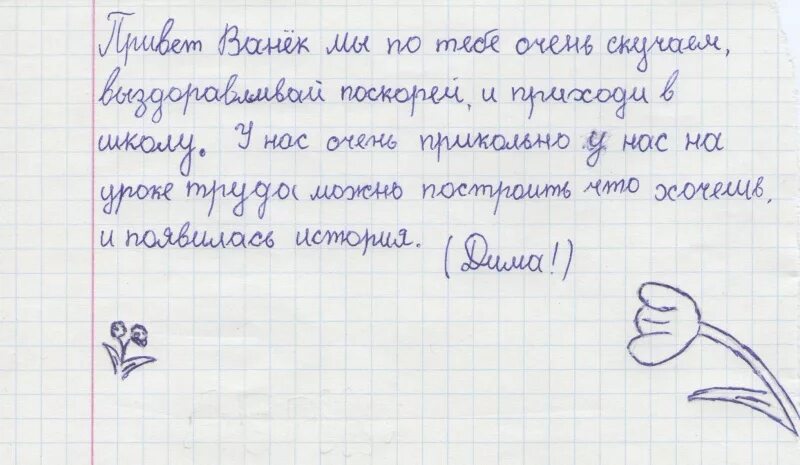 Привет Ванёк мы по тебе очень скучаем,
выздоравливай поскорей, и приходи в
школу. У нас очень прикольно у нас на
уроке труда можно построить что хочешь,
и появилась история.
(Дима!)